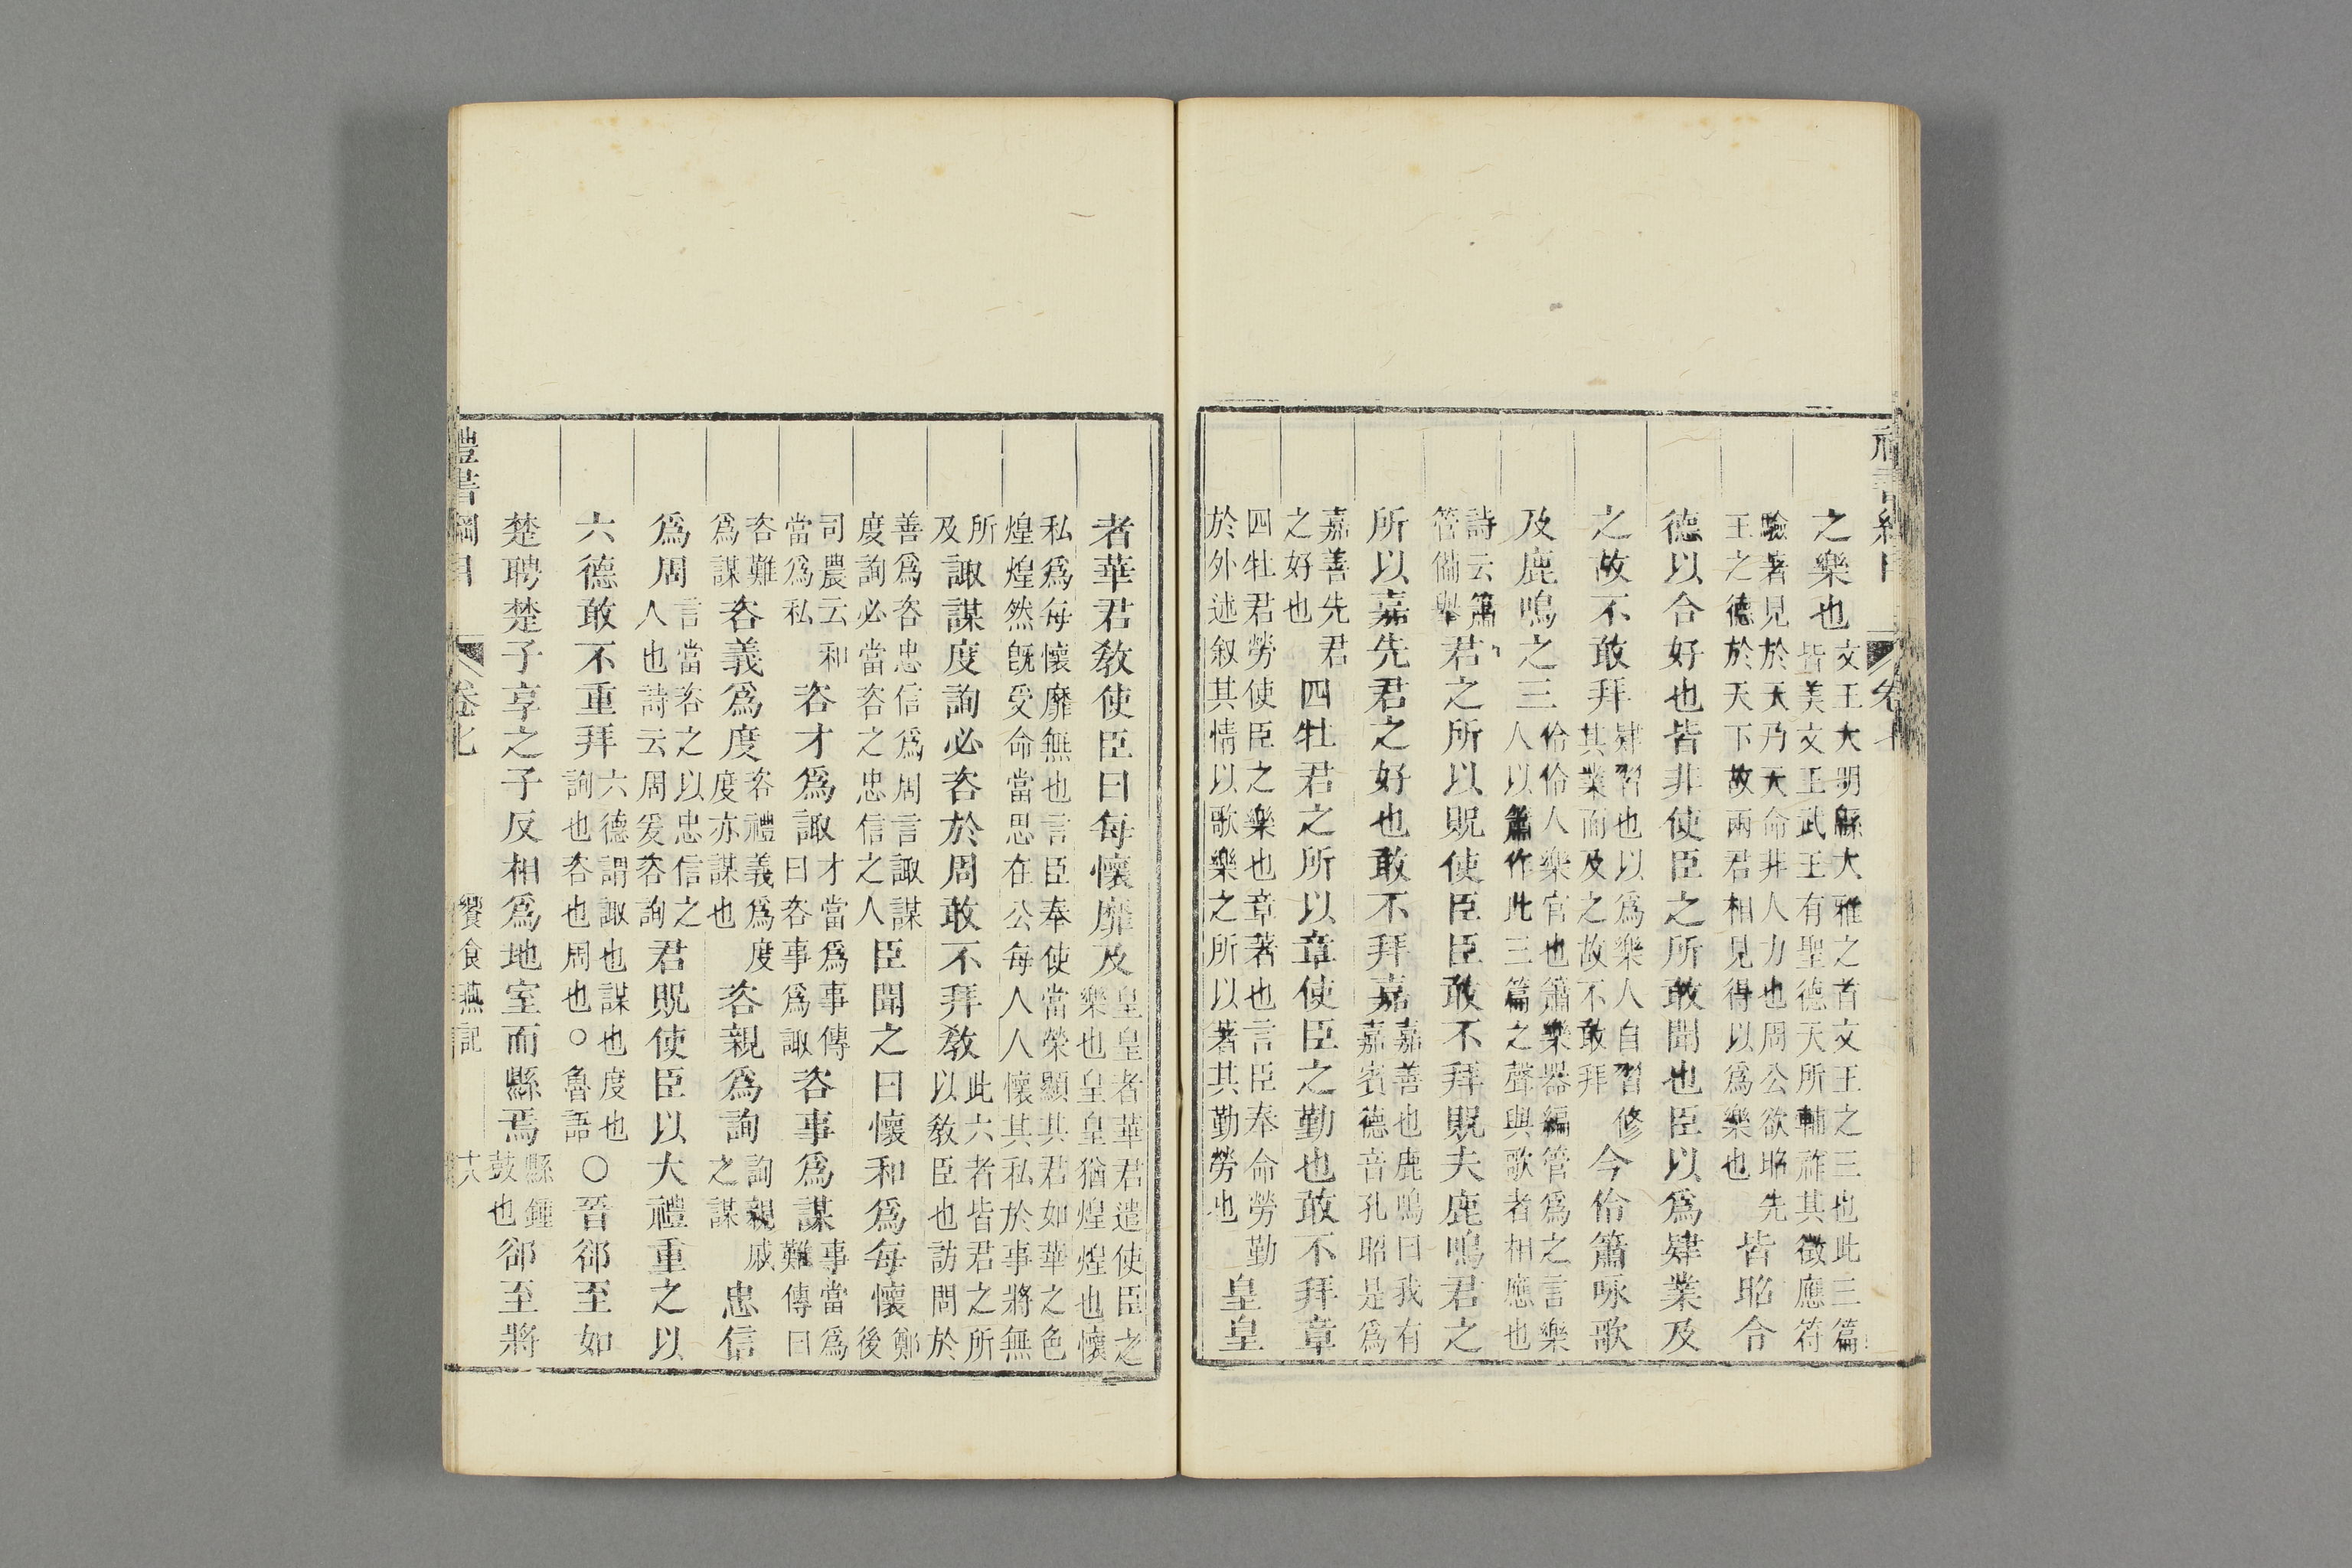 之樂也文王大明緜大雅之首文王之三也此三篇皆美文王武王有聖德天所輔祚其徵應符
驗著見於天乃天命非人力也周公欲昭先王之德於天下故兩君相見得以爲樂也皆昭令
德以合好也皆非使臣之所敢聞也臣以爲肄業及
之故不敢拜肄習也以爲樂人自習修其業而及之故不敢拜今伶簫咏歌
及鹿鳴之三伶伶人樂官也簫樂器編管爲之言樂人以簫作此三篇之聲與歌者相應也
詩云簫管備舉君之所以貺使臣臣敢不拜貺夫鹿鳴君之
所以嘉先君之好也敢不拜嘉嘉善也鹿鳴曰我有嘉賓德音孔昭是爲
嘉善先君之好也四牡君之所以章使臣之勤也敢不拜章
四牡君勞使臣之樂也章著也言臣奉命勞勤於外述叙其情以歌樂之所以著其勤勞也皇皇
者華君敎使臣曰每懷靡及皇皇者華君遣使臣之樂也皇皇猶煌煌也懷
私爲每懷靡無也言臣奉使當榮顯其君如華之色煌煌然旣受命當思在公每人人懷其私於事將無
所及諏謀度詢必咨於周敢不拜敎此六者皆君之所以敎臣也訪問於
善爲咨忠信爲周言諏謀度詢必當咨之忠信之人臣聞之曰懷和爲每懷鄭後
司農云和當爲私咨才爲諏才當爲事傳曰咨事爲諏咨事爲謀事當爲難傳曰
咨難爲謀咨義爲度咨禮義爲度度亦謀也咨親爲詢詢親戚之謀忠信
爲周言當咨之以忠信之人也詩云周爰咨詢君貺使臣以大禮重之以
六德敢不重拜六德謂諏也謀也度也詢也咨也周也○魯語○晉郤至如
楚聘楚子享之子反相爲地室而縣焉縣鍾鼓也郤至將
禮書綱目 卷七 饗食燕記 十六